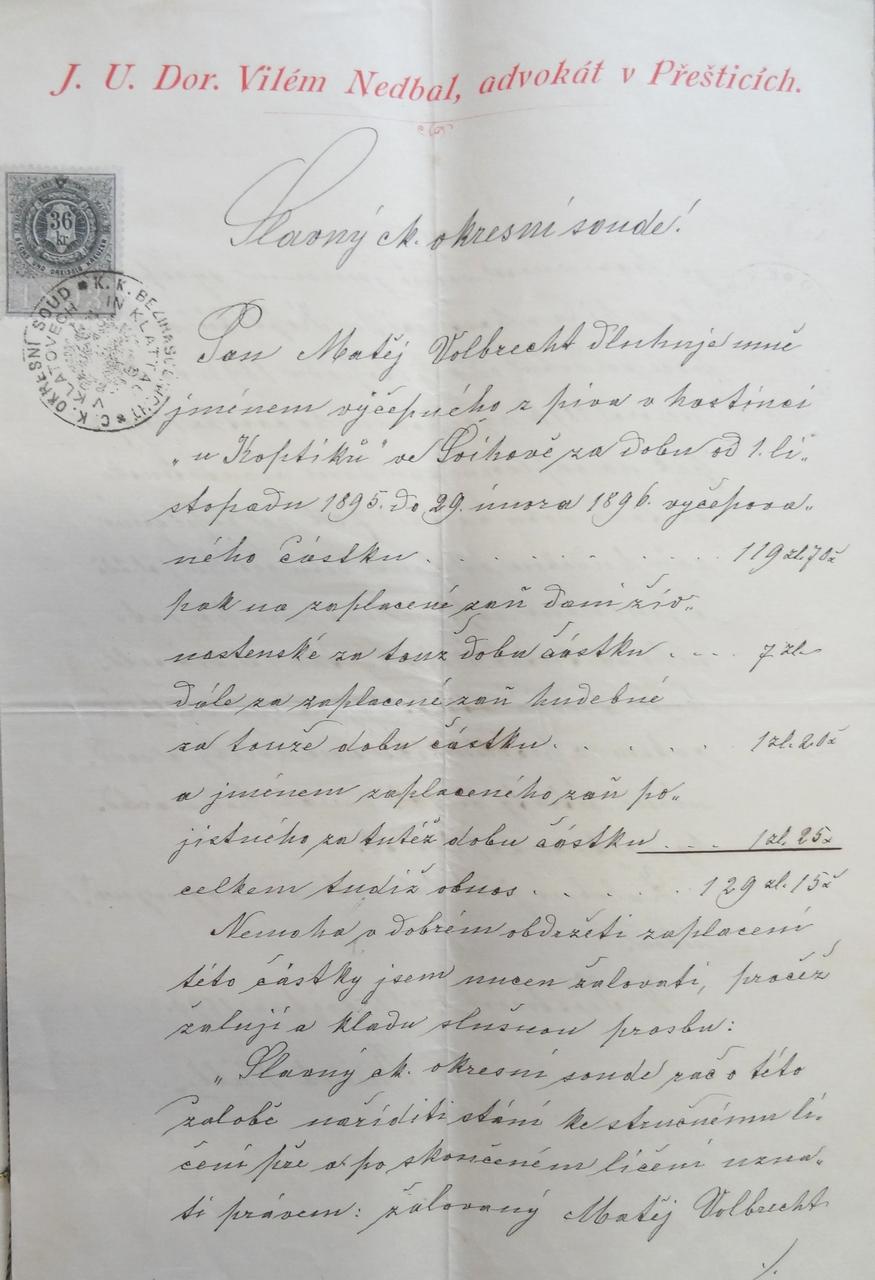 J. U. Dor. Vilém Nedbal, advokát v Přešticích.
36
kr.
C. K. OKRESNÍ SOUD
V KLATOVECH
K. K. BEZIRKSGERICHT
IN KLATTAU
Slavný ck. okresní soude!
Pan Matěj Volbrecht dluhuje mně
jménem výčepného z piva v hostinci
„u Koptiků" ve Švihově za dobu od 1. li„
stopadu 1895. do 29. února 1896. vyčepova„
ného částku . . . . . . . . 119 zl. 70 x
pak na zaplacené zaň dani živ„
nostenské za touž dobu částku . . . . 7 zl.
dále za zaplacené zaň hudebné
za touže dobu částku . . . . . 1 zl. 20 x
a jménem zaplaceného zaň po„
jistného za tutéž dobu částku . . . 1 zl. 25 x
celkem tudíž obnos . . . . . 129 zl. 15 x
Nemoha v dobrém obdržeti zaplacení
této částky jsem nucen žalovati, pročež
žaluji a kladu slušnou prosbu:
„Slavný ck. okresní soude rač o této
žalobě naříditi stání ke stručnému lí„
čení pře a po skončeném líčení uzna„
ti právem: žalovaný Matěj Volbrecht
./.